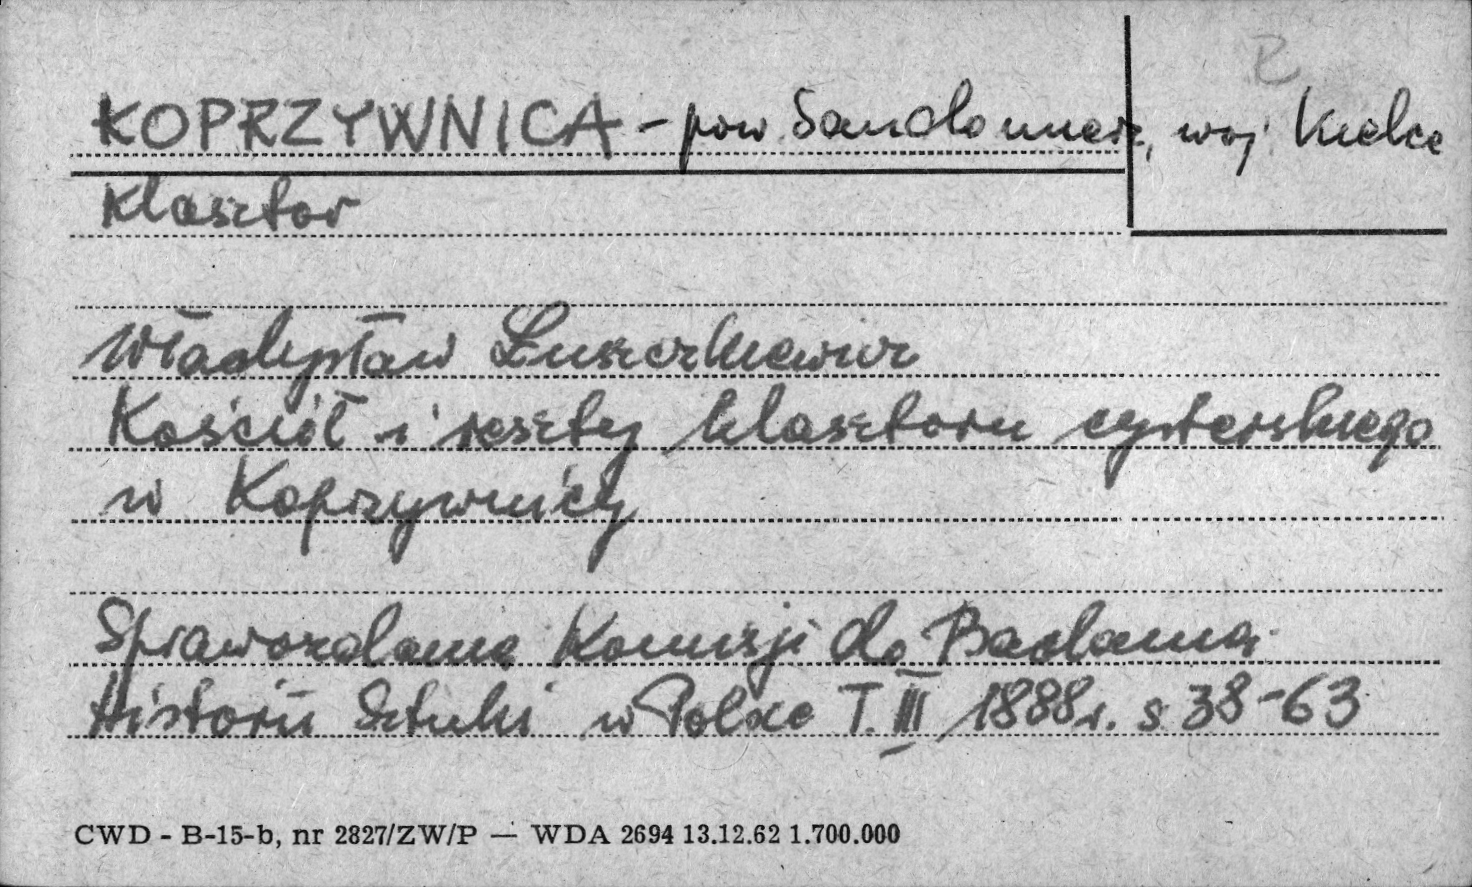 R
KOPRZYWNICA - pow. Sandomierz, woj. Kielce
Klasztor
Władysław Łuszczkiewicz
Kościół i reszty klasztoru cysterskiego
w Koprzywnicy
Sprawozdania Komisji do Badania
Historii Sztuki w Polsce T. III 1888 r. s. 38-63
CWD - B-15-b, nr 2827/ZW/P — WDA 2694 13.12.62 1.700.000